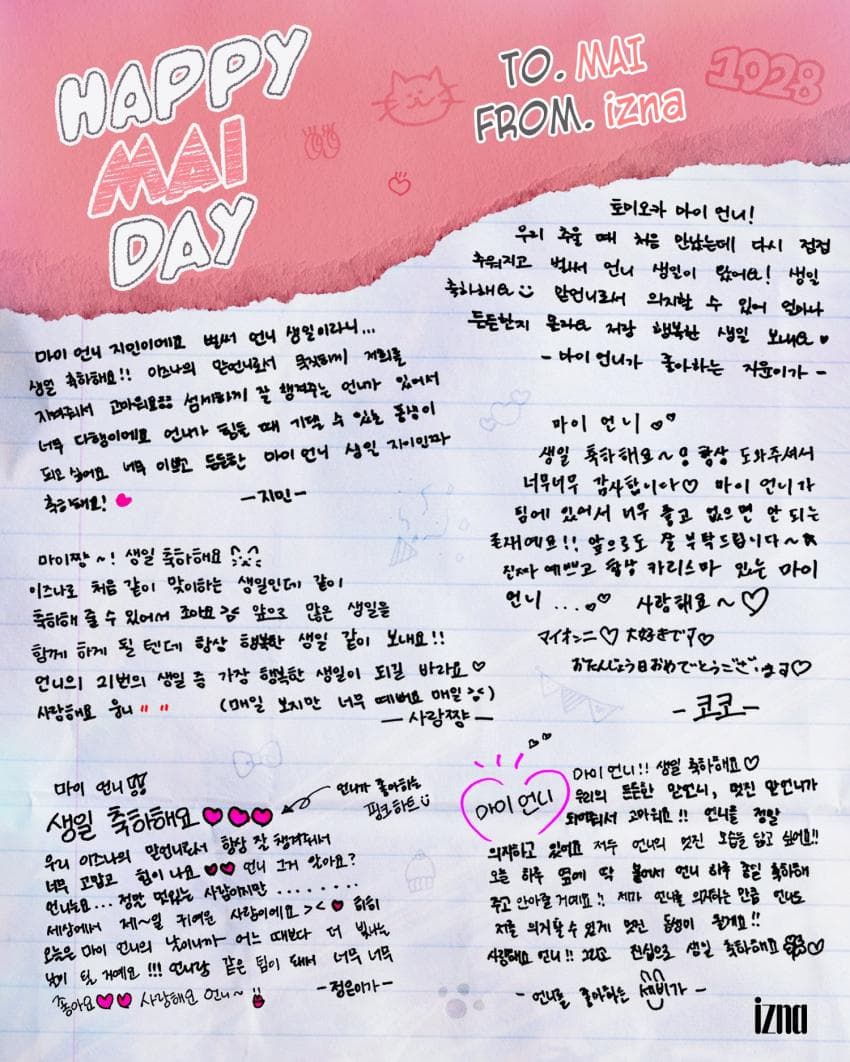 HAPPY
MAI
DAY
TO. MAI
FROM. izna
1028
토미오카 마이 언니!
우리 추울 때 처음 만났는데 다시 점점
추워지고 벌써 언니 생일이 왔어요! 생일
축하해요 맏언니로서 의지할 수 있어 얼마나
든든한지 몰라요 저랑 행복한 생일 보내요
- 마이 언니가 좋아하는 지윤이가 -
마이 언니 지민이에요 벌써 언니 생일이라니...
생일 축하해요!! 이즈나의 맏언니로서 묵직하게 저희를
지켜줘서 고마워요 섬세하게 잘 챙겨주는 언니가 있어서
너무 다행이에요 언니가 힘들 때 기댈 수 있는 동생이
되고 싶어요 너무 이쁘고 든든한 마이 언니 생일 지이인짜
축하해요!
-지민-
마이 언니
생일 축하해요~! 항상 도와주셔서
너무너무 감사합니다♡ 마이 언니가
팀에 있어서 너무 좋고 없으면 안 되는
존재예요!! 앞으로도 잘 부탁드립니다~
진짜 예쁘고 항상 카리스마 있는 마이
언니 .... 사랑해요~♡
マイオンニ♡ 大好きです♡
おたんじょう日おめでとうございます♡
-코코-
마이짱~! 생일 축하해요
이즈나로 처음 같이 맞이하는 생일인데 같이
축하해 줄 수 있어서 조아요 앞으로 많은 생일을
함께 하게 될 텐데 항상 행복한 생일 같이 보내요!!
언니의 21번의 생일 중 가장 행복한 생일이 되길 바라요♡
사랑해요 웅니 (매일 보지만 너무 예뻐요 매일)
-사랑쨩-
마이 언니
생일 축하해요♥♥♥
언니가 좋아하는
핑크하트
우리 이즈나의 맏언니로서 항상 잘 챙겨줘서
너무 고맙고 힘이 나요♥♥ 언니 그거 알아요?
언니는요... 정말 멋있는 사람이지만 ........
세상에서 제~일 귀여운 사람이에요 >< ♥ 히히
오늘은 마이 언니의 날이니까 어느 때보다 더 빛나는
날이 될 거예요!!! 언니랑 같은 팀이 돼서 너무 너무
좋아요♥♥ 사랑해요 언니~
-정은이가-
마이 언니
마이 언니!! 생일 축하해요♡
우리의 든든한 맏언니, 멋진 맏언니가
되어줘서 고마워요!! 언니를 정말
의지하고 있어요 저두 언니의 멋진 모습을 닮고 싶어요!!
오늘 하루 옆에 딱 붙어서 언니 하루 종일 축하해
주고 안아줄 거예요!! 제가 언니를 의지하는 만큼 언니도
저를 의지할 수 있게 멋진 동생이 될게요!!
사랑해요 언니!! 그리고 진심으로 생일 축하해요♡
- 언니를 좋아하는 세비가 -
izna